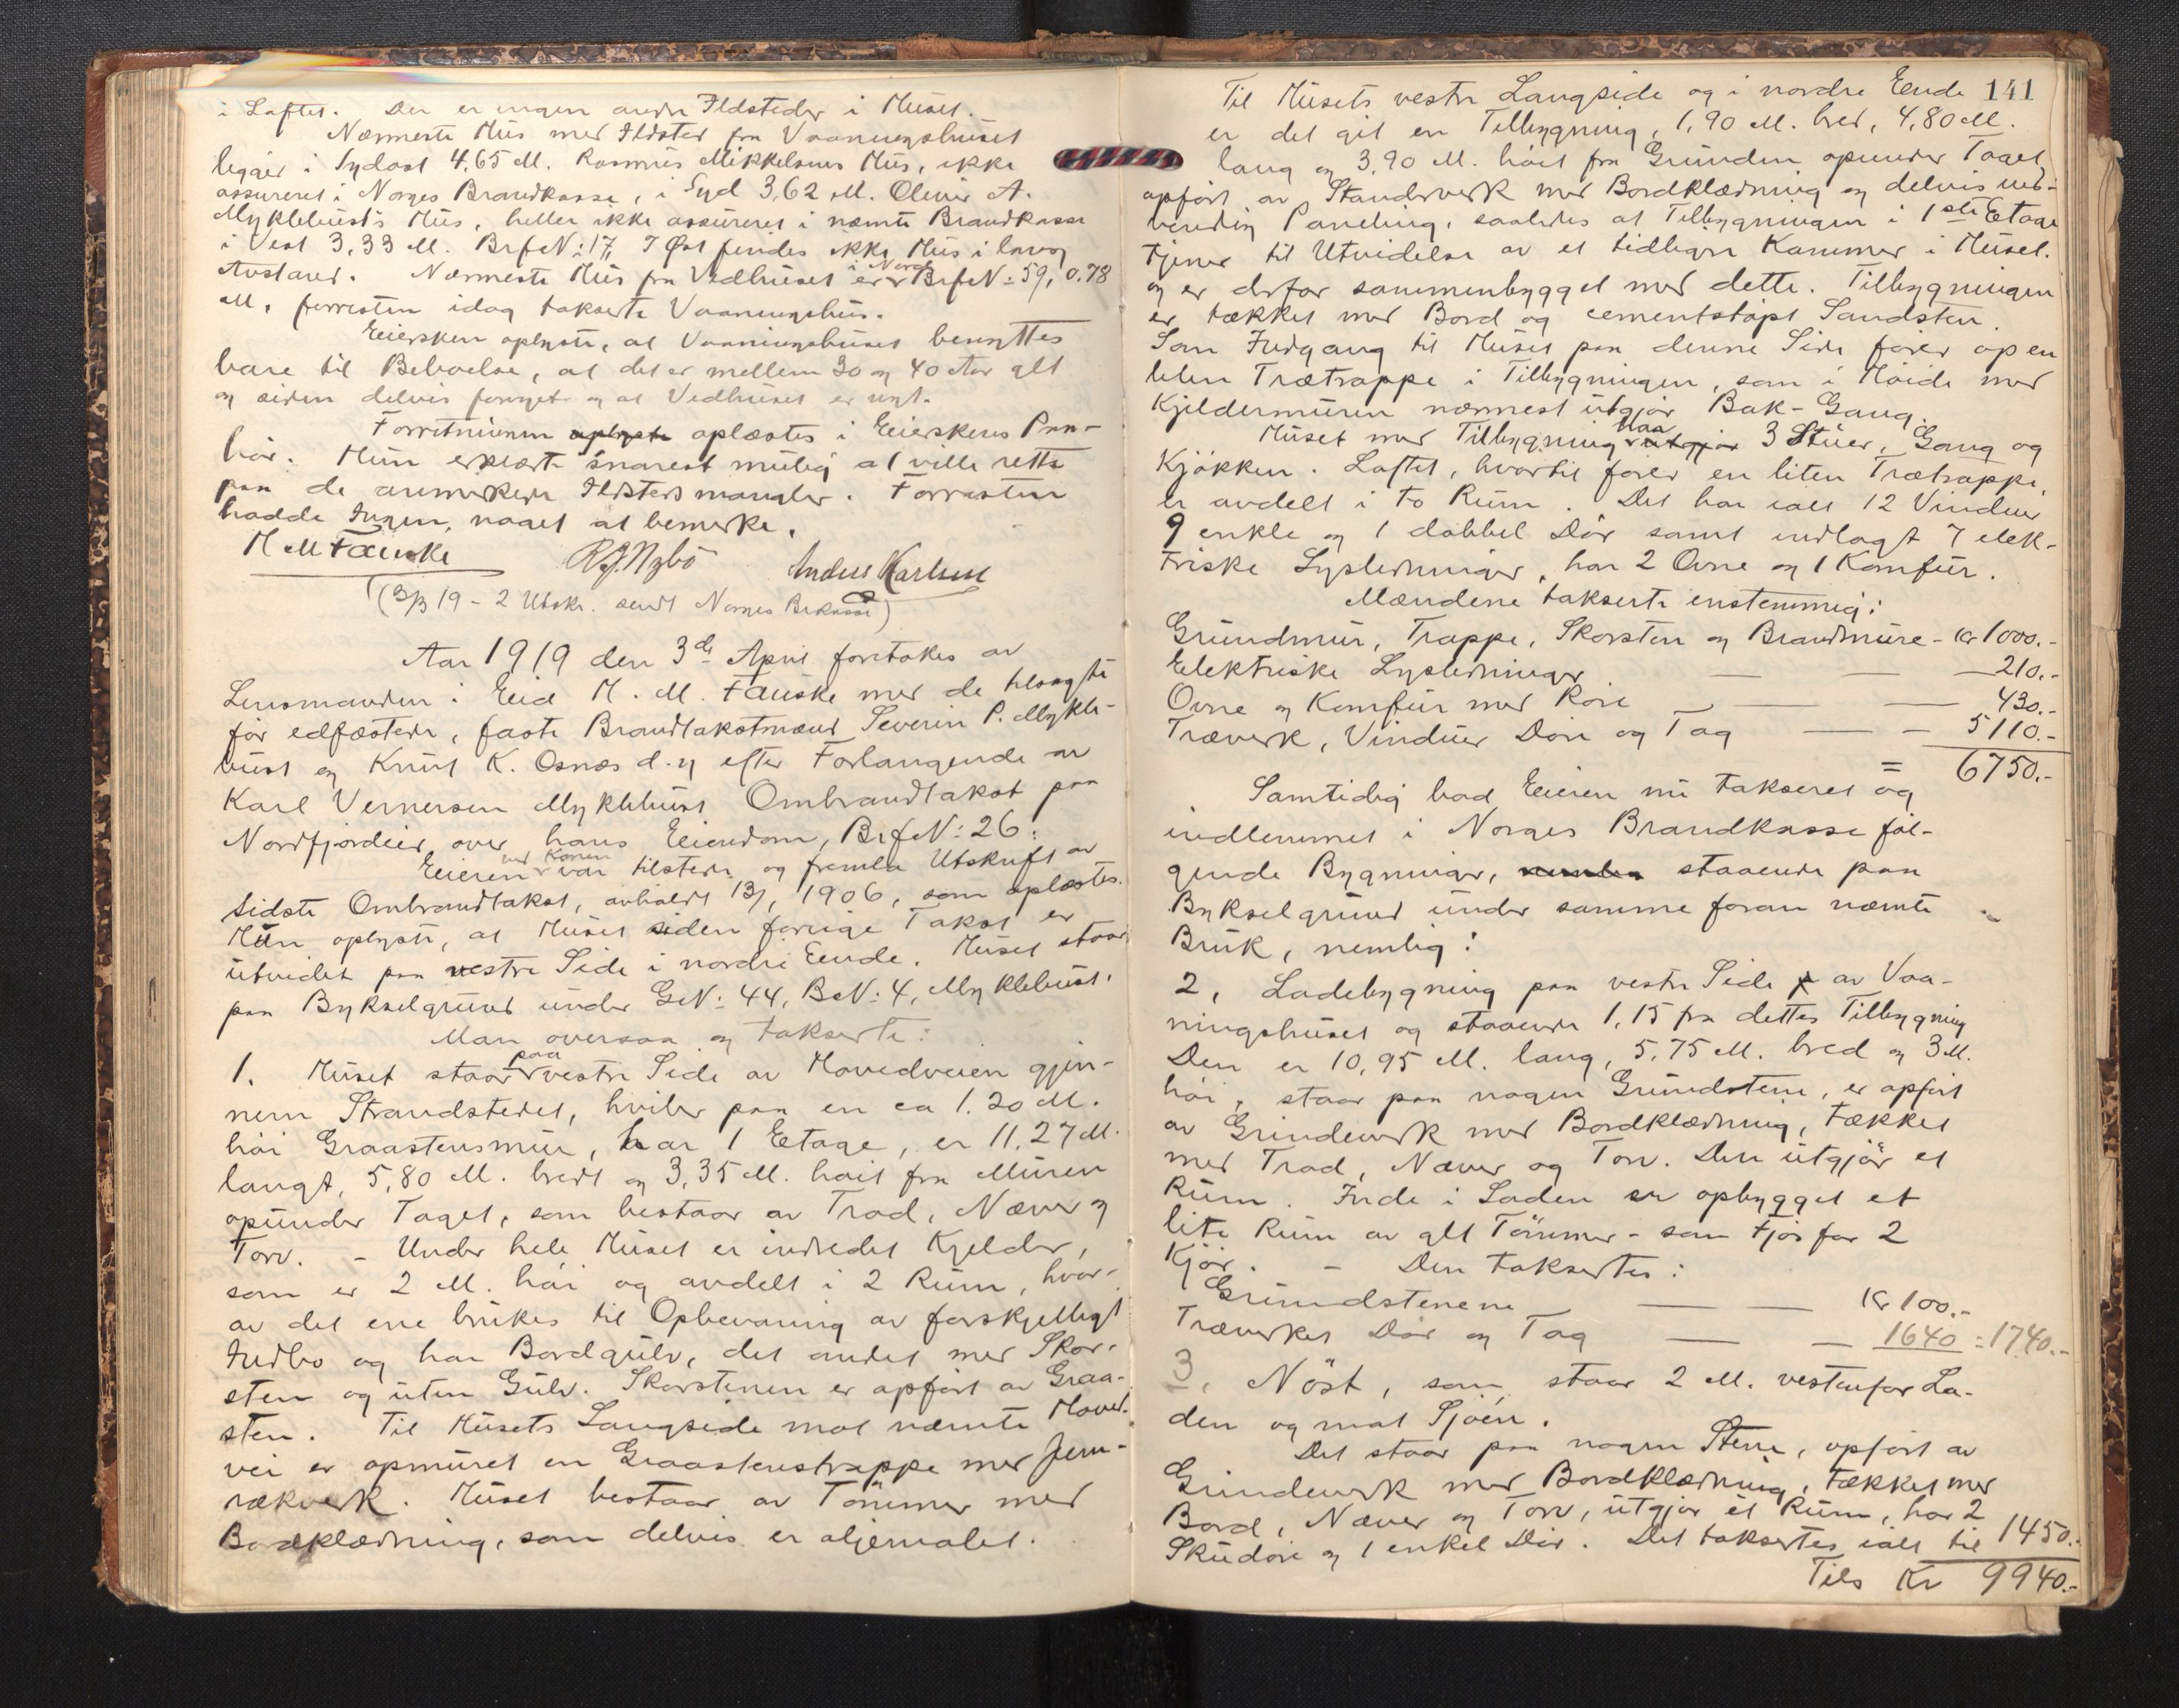 i Loftet. Der er ingen andre Ildsteder i Huset.
Nærmeste Hus med Ildsted fra Vaaningshuset
ligger i Sydost 4,65 M. Rasmus Mikkelsens Hus, ikke
assureret i Norges Brandkasse, i Syd 3,62 M. Oline A.
Myklebusts Hus, heller ikke assureret i næmte Brandkasse
i Vest 3,33 M. BrfN: 17, I Øst findes ikke Hus i lang
Avstand. Nærmeste Hus fra Vedhuset er i Nord BrfN: 59, 0.78
M, forresten idag takserte Vaaningshus.
Eiersken oplyste, at Vaaningshuset benyttes
bare til Beboelse, at det er mellem 30 og 40 Aar glt
og siden delvis fornyet og at Vedhuset er nyt.
Forretningen oplyste oplæstes i Eierskens Paa-
hör. Hun erklærte snarest mulig at ville rette
paa de anmerkede Ildstedsmangler. Forresten
hadde Ingen noget at bemerke.
H M Fauske R.J. Nybö Anders Karlsen
(3/3 19 - 2 Utskr. sendt Norges Brkasse)
Aar 1919 den 3de April foretokes av
Lensmanden i Eid H. M. Fauske med de tilsagte
før edfæstede, faste Brandtakstmænd Severin P. Mykle-
bust og Knut K. Osnes d.y efter Forlangende av
Karl Vernersen Myklebust Ombrandtakst paa
Nordfjordeid over hans Eiendom, BrfN: 26:
Eieren ved Konen var tilstede og fremla Utskrift av
sidste Ombrandtakst, avholdt 13/1 1906, som oplæstes.
Hun oplyste, at Huset siden forrige Takst er
utvidet paa vestre Side i nordre Eende. Huset staar
paa Bykselgrund under GN: 44, BN: 4, Myklebust.
Man oversaa og takserte:
1. Huset staar paa vestre Side av Hovedveien gjen-
nem Strandstedet, hviler paa en ca 1.20 M.
høi Graastensmur, har 1 Etage, er 11,27 M.
langt, 5,80 M. bredt og 3,35 M. høit fra Muren
opunder Taget, som bestaar av Trod, Næver og
Torv. - Under hele Huset er indredet Kjelder,
som er 2 M. høi og avdelt i 2 Rum, hvor-
av det ene brukes til Opbevaring av forskjelligt
Indbo og har Bordgulv, det andet med Skor-
sten og uten Gulv. Skorstenen er opført av Graa-
sten. Til Husets Langside mot næmte Hoved-
vei er opmuret en Graastenstrappe med Jern-
rækverk. Huset bestaar av Tömmer med
Bordklædning, som delvis er oljemalet.
141
Til Husets vestre Langside og i nordre Eende
er det git en Tilbygning, 1,90 M. bred, 4,80 M.
lang og 3,90 M. høit fra Grunden opunder Taget
opført av Standverk med Bordklædning og delvis ind-
vendig Paneling, saaledes at Tilbygningen i 1ste Etage
tjener til Utvidelse av et tidligere Kammer i Huset.
og er derfor sammenbygget med dette. Tilbygningen
er tækket med Bord og cementstøpt Sandsten.
Som Indgang til Huset paa denne Side fører op en
liten Trætrappe i Tilbygningen, som i Høide med
Kjeldermuren nærmest utgjør Bak-Gang.
Huset med Tilbygning utgjør 3 Stuer, Gang og
Kjökken. Loftet, hvortil fører en liten Trætrappe,
er avdelt i to Rum. Det har ialt 12 Vinduer
9 enkle og 1 dobbel Dör samt indlagt 7 elek-
triske Lysledninger, har 2 Ovne og 1 Komfur.
Mændene takserte enstemmig:
Grundmur, Trappe, Skorsten og Brandmure - Kr 1000.-
Elektriske Lysledninger — — — 210.-
Ovne og Komfur med Röre — — 430.-
Træverk, Vinduer Döre og Tag — — 5110.-
= 6750.-
Samtidig bad Eieren nu takseret og
indlemmet i Norges Brandkasse føl-
gende Bygninger, staaende paa
Bykselgrund under samme foran næmte
Bruk, nemlig:
2, Ladebygning paa vestre Side av Vaa-
ningshuset og staaende 1,15 fra dettes Tilbygning
Den er 10,95 M. lang, 5,75 M. bred og 3 M.
høi, staar paa nogen Grundstene, er opført
av Grindeverk med Bordklædning, tækket
med Trod, Næver og Torv. Den utgjör et
Rum. Inde i Laden er opbygget et
lite Rum av glt Tömmer - som Fjös for 2
Kjör. - Den takseres:
Grundstenene — — Kr 100.-
Træverket Dör og Tag — — 1640 = 1740.-
3, Nöst, som staar 2 M. vestenfor La-
den og mot Sjöen.
Det staar paa nogen Stene, opført av
Grindeverk med Bordklædning, tækket med
Bord, Næver og Torv, utgjør et Rum, har 2
Skuddøre og 1 enkel Dör. Det taksertes ialt til 1450.-
Tils Kr 9940.-